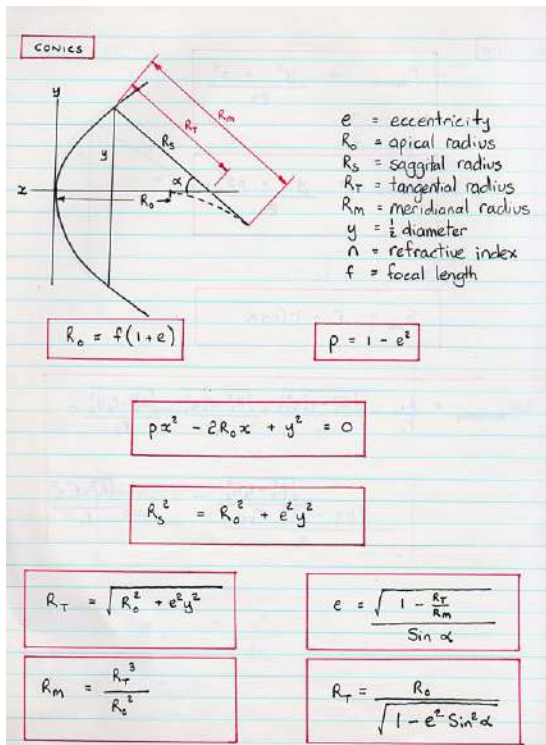 CONICS
y
x
y
R₀
α
Rs
R_T
Rm
e = eccentricity
R₀ = apical radius
Rs = saggital radius
R_T = tangential radius
Rm = meridianal radius
y = ½ diameter
n = refractive index
f = focal length
R₀ = f(1+e)
p = 1 - e²
px² - 2R₀x + y² = 0
Rs² = R₀² + e²y²
R_T = √(R₀² + e²y²)
e = √(1 - R_T/Rm) / Sin α
Rm = R_T³ / R₀²
R_T = R₀ / √(1 - e² Sin² α)